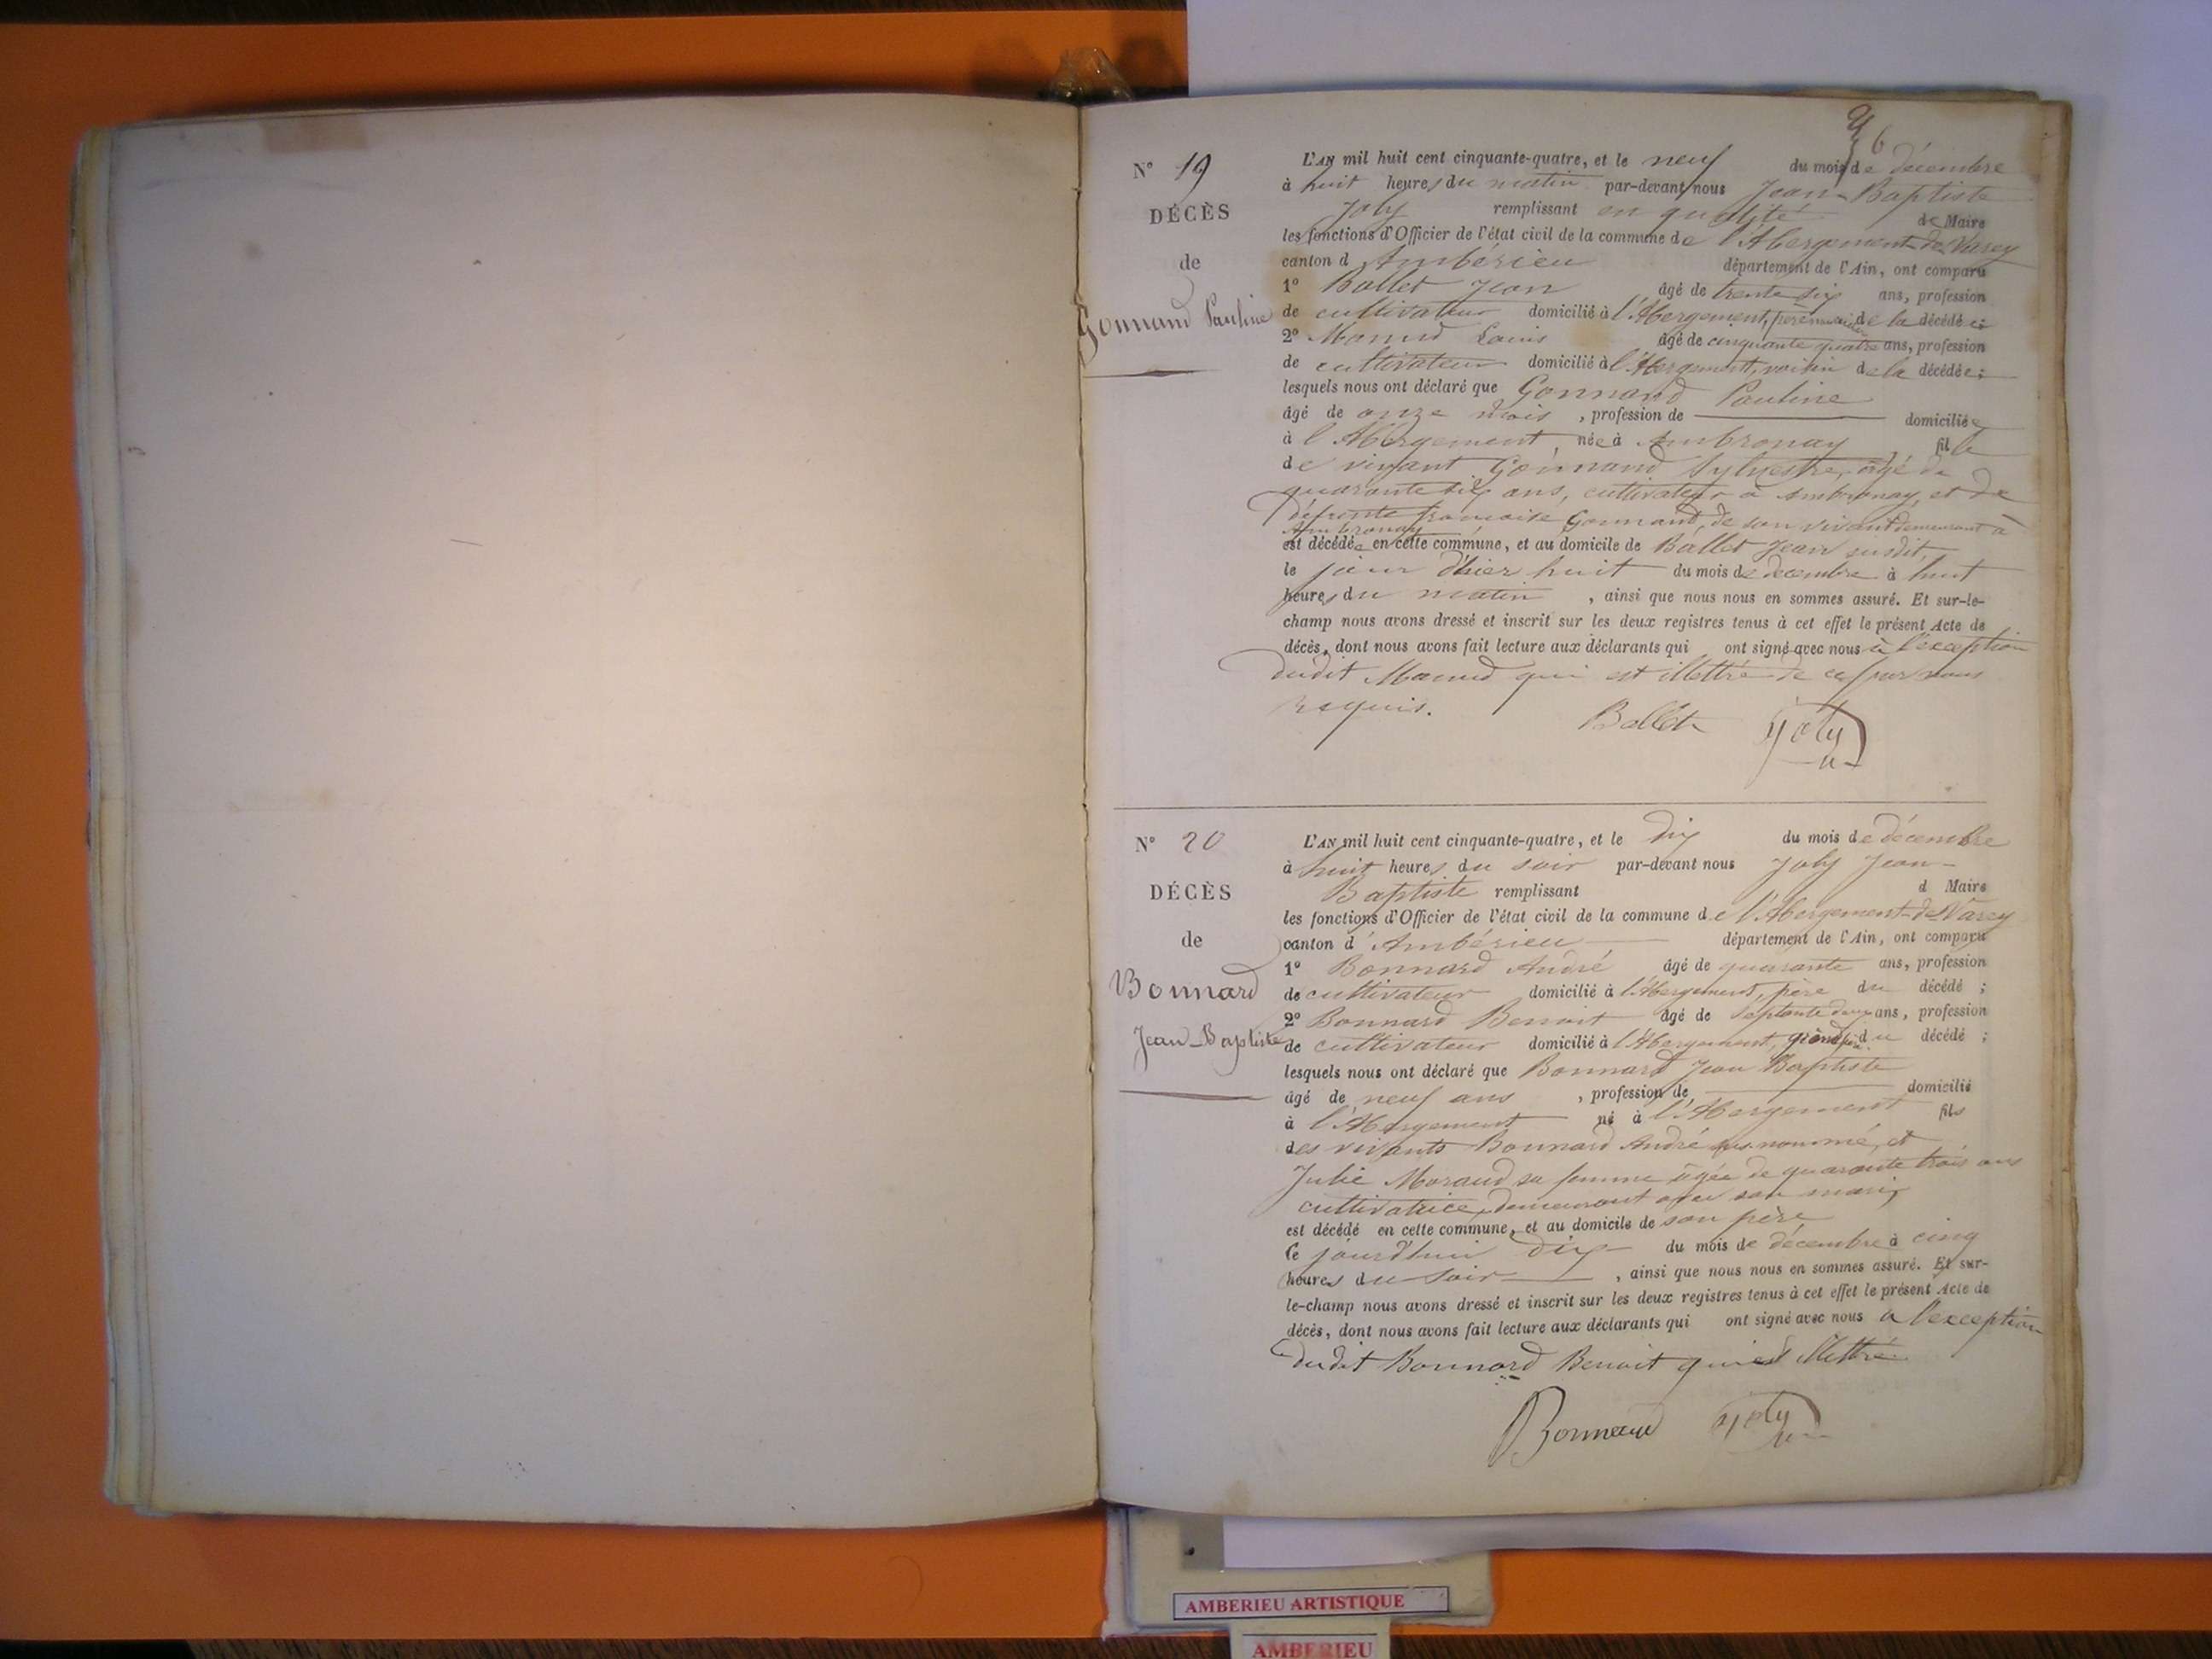 6
N° 19
DÉCÈS
de
Gonnand Pauline
L'AN mil huit cent cinquante-quatre, et le neuf du mois de décembre
à huit heures du matin par-devant nous Jean-Baptiste
Joly remplissant en qualité de Maire
les fonctions d'Officier de l'état civil de la commune de l'Abergement-de-Varey
canton d'Ambérieu département de l'Ain, ont comparu
1° Ballet Jean âgé de trente six ans, profession
de cultivateur domicilié à l'Abergement, père de la décédée;
2° Louis âgé de cinquante quatre ans, profession
de cultivateur domicilié à l'Abergement, voisin de la décédée;
lesquels nous ont déclaré que Gonnand Pauline
âgé de onze mois, profession de domiciliée
à l'Abergement née à Ambronay, fille
de vivant Gonnand Sylvestre, âgé de
quarante six ans, cultivateur à Ambronay, et de
défunte françoise Gonnand, de son vivant demeurant à
Ambronay
est décédée en cette commune, et au domicile de Ballet Jean susdit,
le jour d'hier huit du mois de décembre à huit
heures du matin, ainsi que nous nous en sommes assuré. Et sur-le-
champ nous avons dressé et inscrit sur les deux registres tenus à cet effet le présent Acte de
décès, dont nous avons fait lecture aux déclarants qui ont signé avec nous à l'exception
dudit qui est illettré de ce par nous
requis.
Ballet Joly
N° 20
DÉCÈS
de
Bonnard
Jean-Baptiste
L'AN mil huit cent cinquante-quatre, et le dix du mois de décembre
à huit heures du soir par-devant nous Joly Jean-
Baptiste remplissant d Maire
les fonctions d'Officier de l'état civil de la commune de l'Abergement-de-Varey
canton d'Ambérieu département de l'Ain, ont comparu
1° Bonnard André âgé de quarante ans, profession
de cultivateur domicilié à l'Abergement, père du décédé;
2° Bonnard Benoit âgé de septante deux ans, profession
de cultivateur domicilié à l'Abergement, grand père du décédé;
lesquels nous ont déclaré que Bonnard Jean Baptiste
âgé de neuf ans, profession de domicilié
à l'Abergement né à l'Abergement fils
des vivants Bonnard André sus-nommé, et
Julie Moraud sa femme âgée de quarante trois ans
cultivatrice, demeurant avec son mari,
est décédé en cette commune, et au domicile de son père
le jourd'hui dix du mois de décembre à cinq
heures du soir, ainsi que nous nous en sommes assuré. Et sur-
le-champ nous avons dressé et inscrit sur les deux registres tenus à cet effet le présent Acte de
décès, dont nous avons fait lecture aux déclarants qui ont signé avec nous à l'exception
dudit Bonnard Benoit qui est illettré
Bonnard Joly
AMBERIEU ARTISTIQUE
AMBERIEU